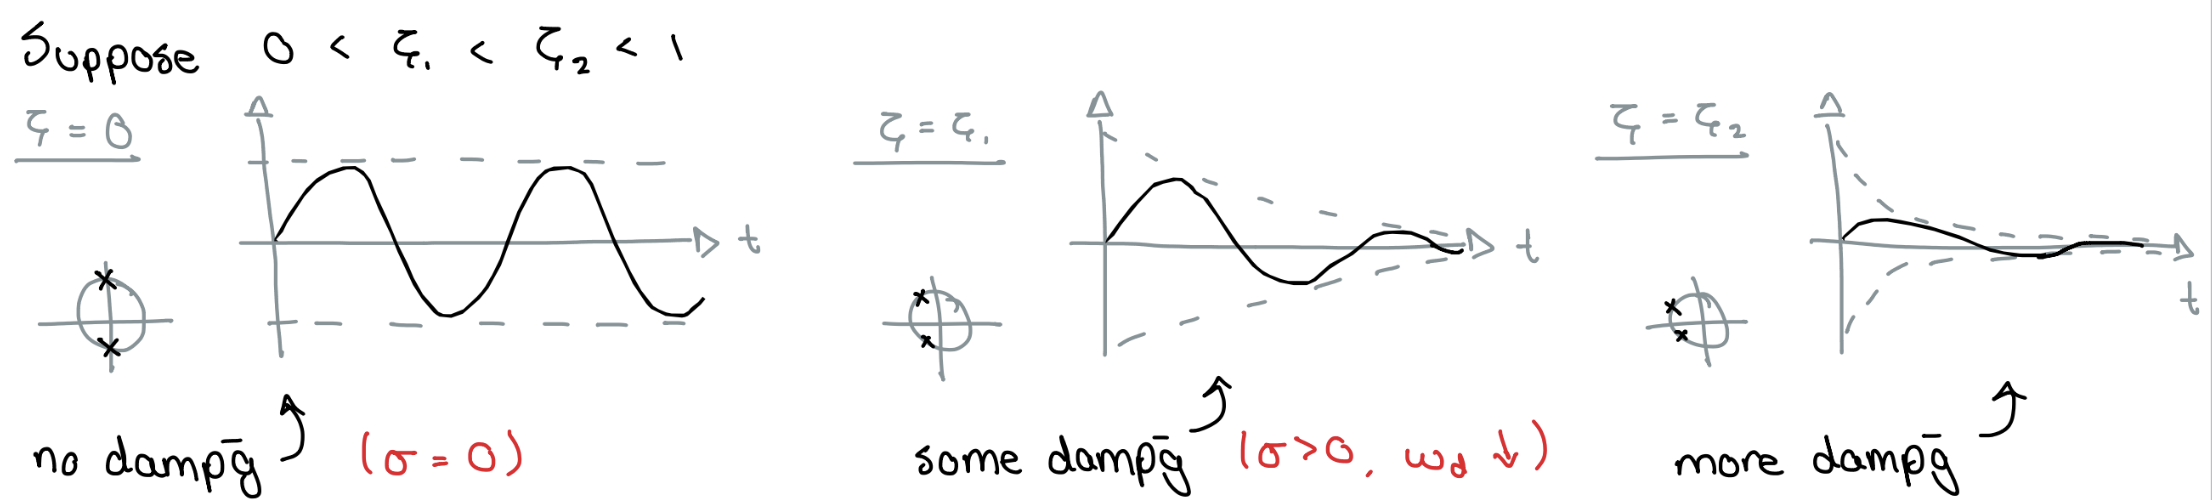 Suppose 0 < ζ₁ < ζ₂ < 1
ζ = 0
t
no dampḡ (σ = 0)
ζ = ζ₁
t
some dampḡ (σ>0, ω_d ↓)
ζ = ζ₂
t
more dampḡ